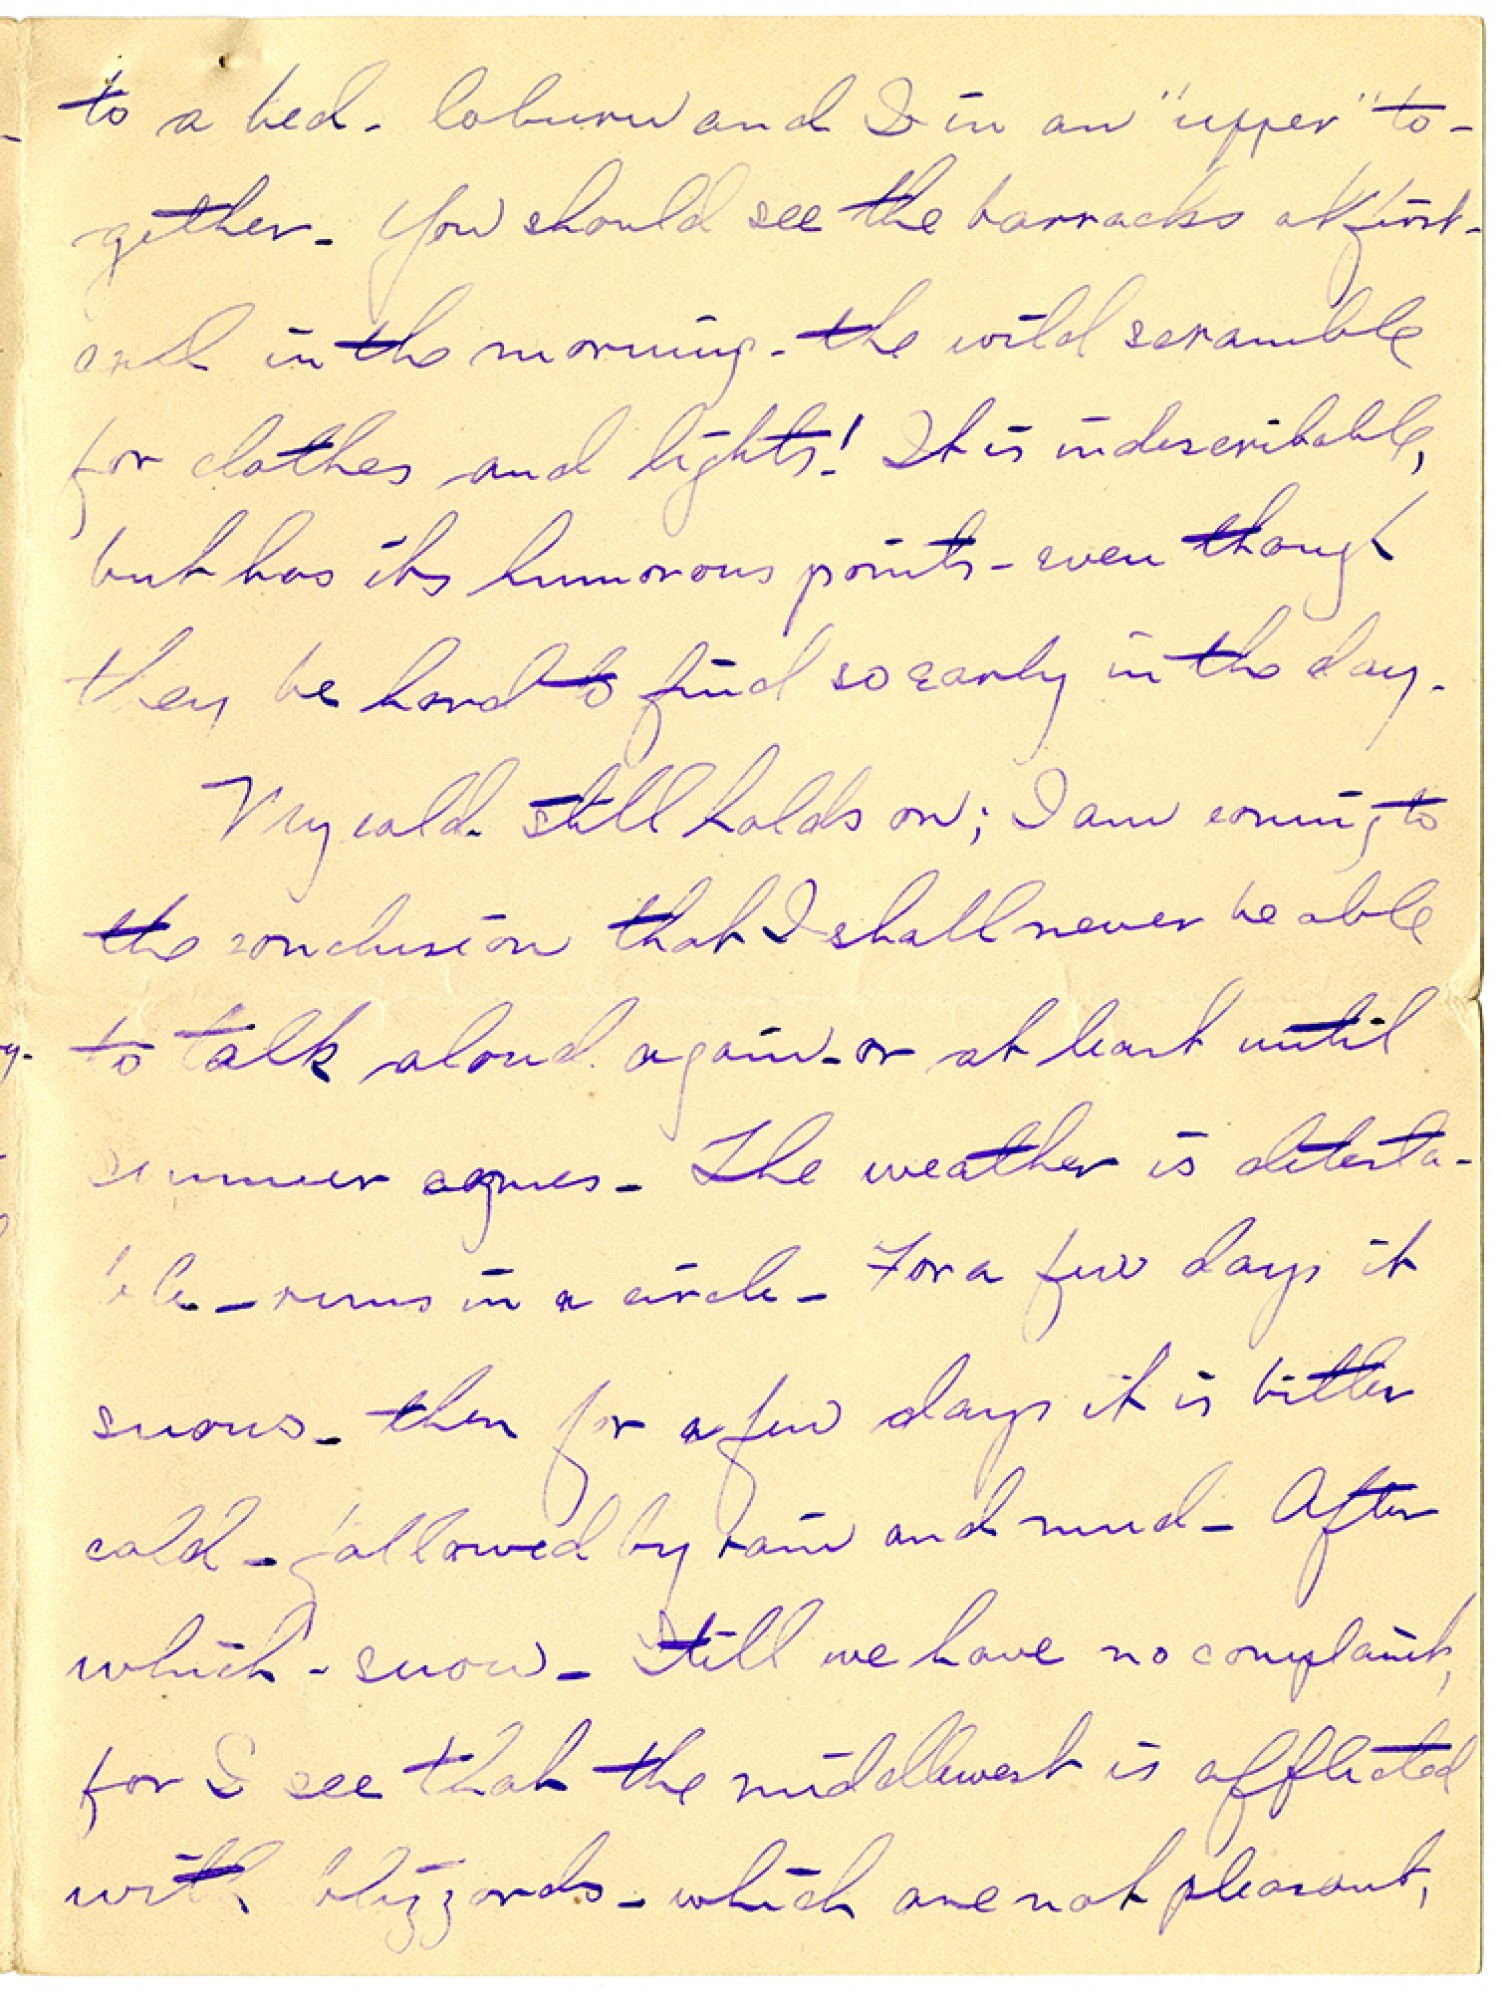 to a bed - Coburn and I in an "upper" to-
gether - You should see the barracks at first-
call in the morning - the wild scramble
for clothes and lights! It is indescribable,
but has its humorous points - even though
they be hard to find so early in the day.
My cold still holds on; I am coming to
the conclusion that I shall never be able
to talk aloud again - or at least until
summer comes - The weather is detesta-
ble - runs in a circle - For a few days it
snows - then for a few days it is bitter
cold - followed by rain and mud - After
which - snow - Still we have no complaint,
for I see that the middlewest is afflicted
with blizzards - which are not pleasant,